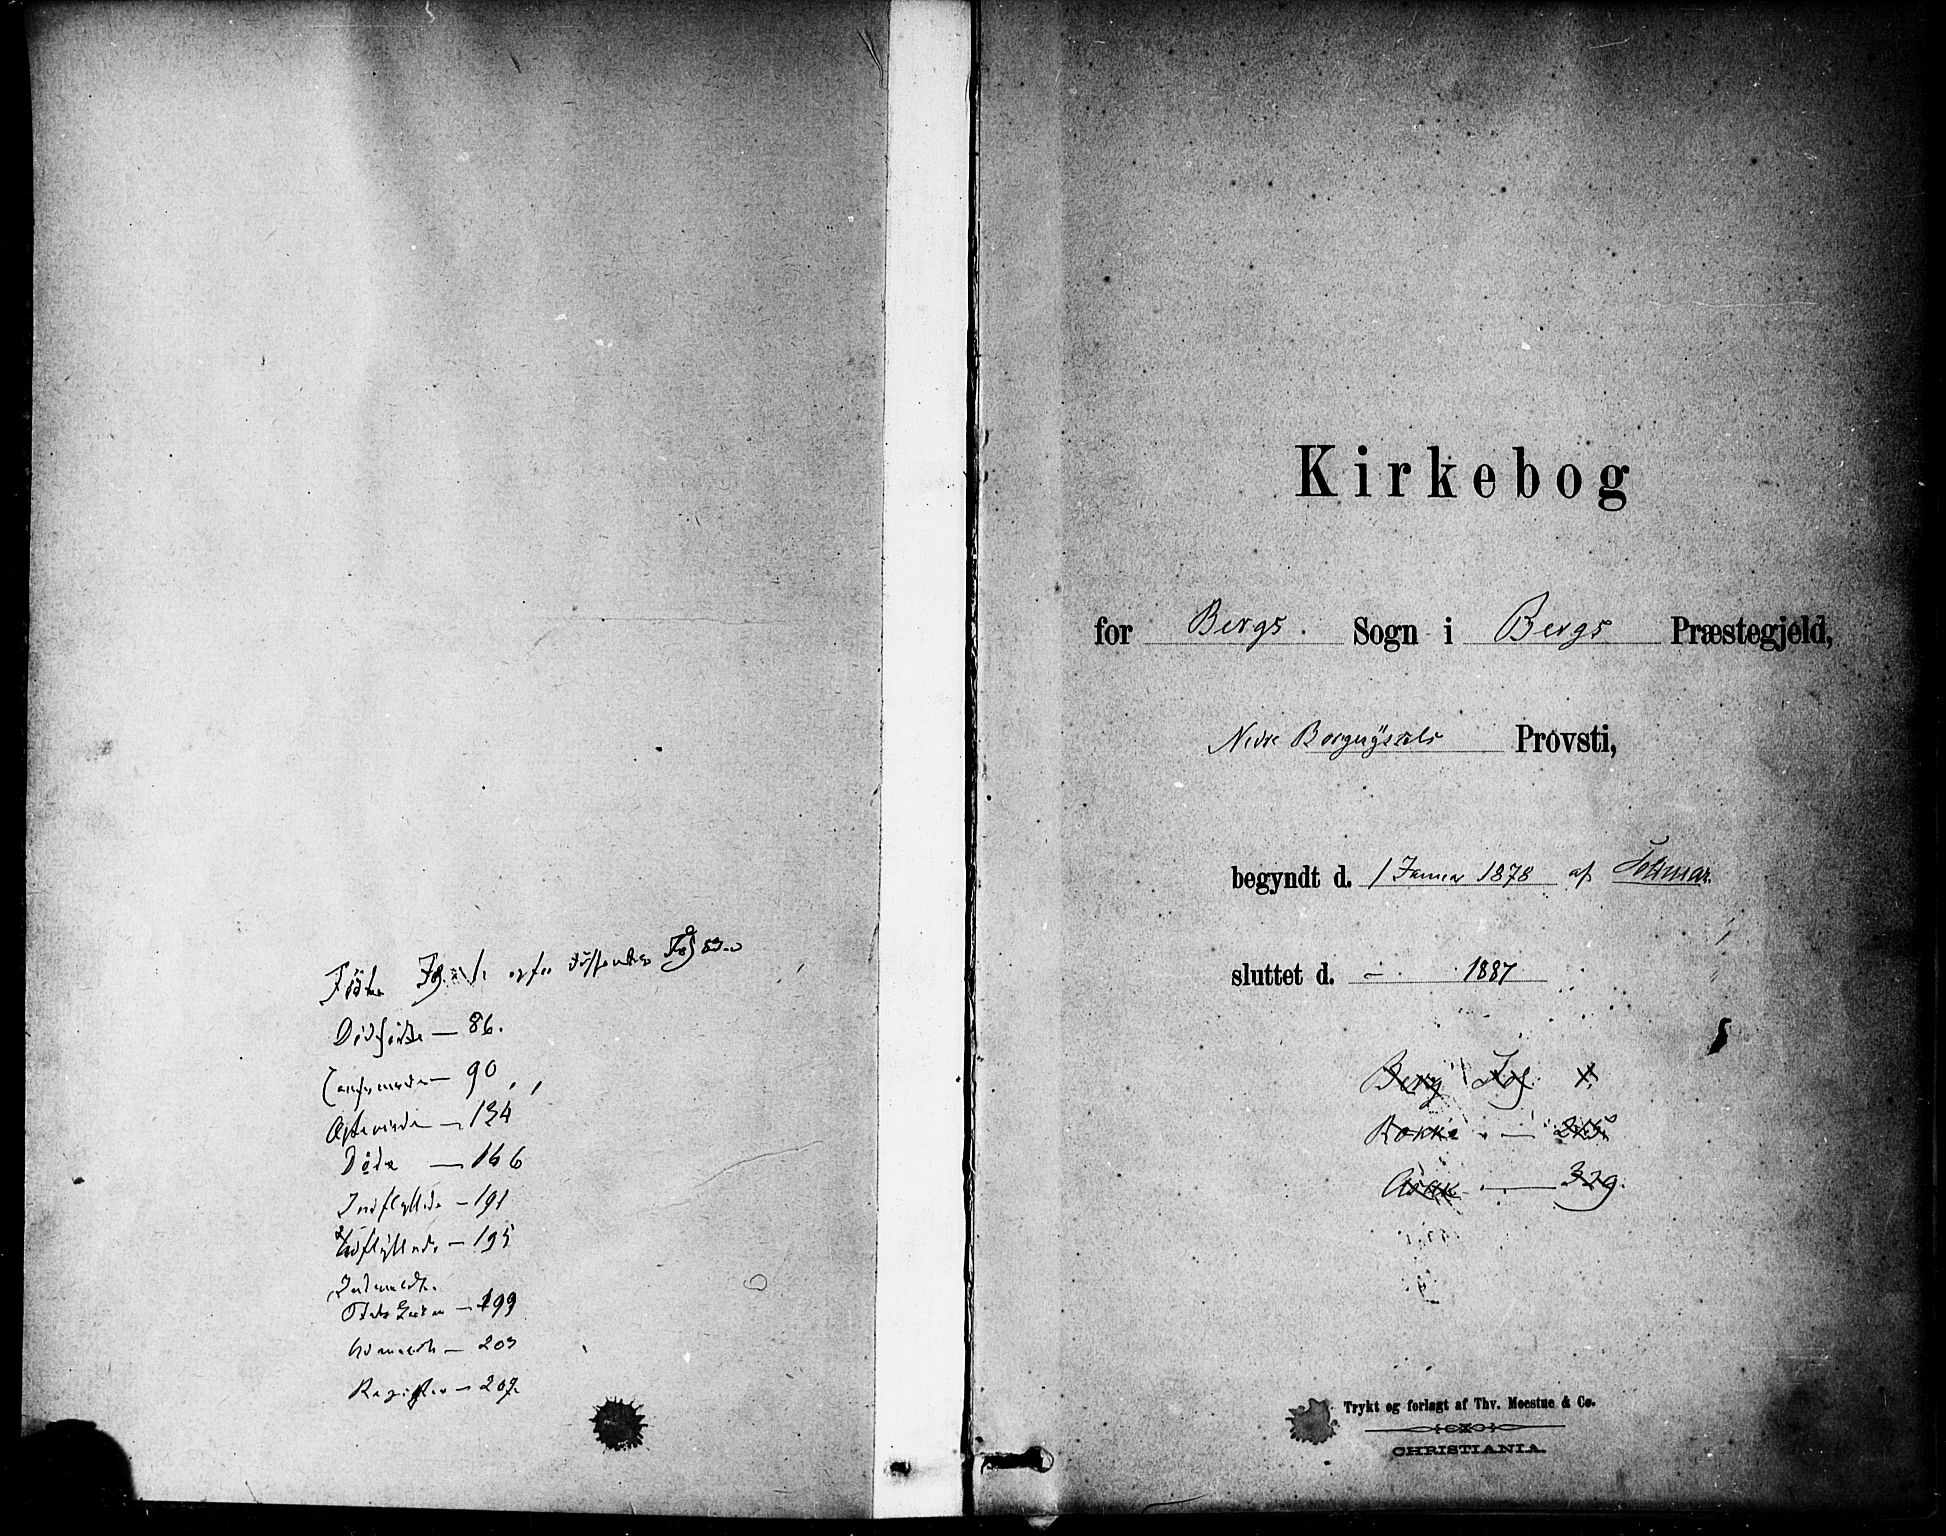 Fødte
Dødfødte — 86.
Confirmerede — 90
Ægteviede — 134
Døde — 166
Indflyttede — 191
Udflyttede — 195
Indmeldte
— 199
Udmeldte — 203
Register — 207.
Kirkebog
for Bergs. Sogn i Bergs Præstegjeld,
Nedre Borgesyssels Provsti,
begyndt d. 1 Januar 1878 af
sluttet d. — 1887
Berg Fol. 1.
Rokke — 215
Asak — 329.
Trykt og forlagt af Thv. Moestue & Co.
CHRISTIANIA.